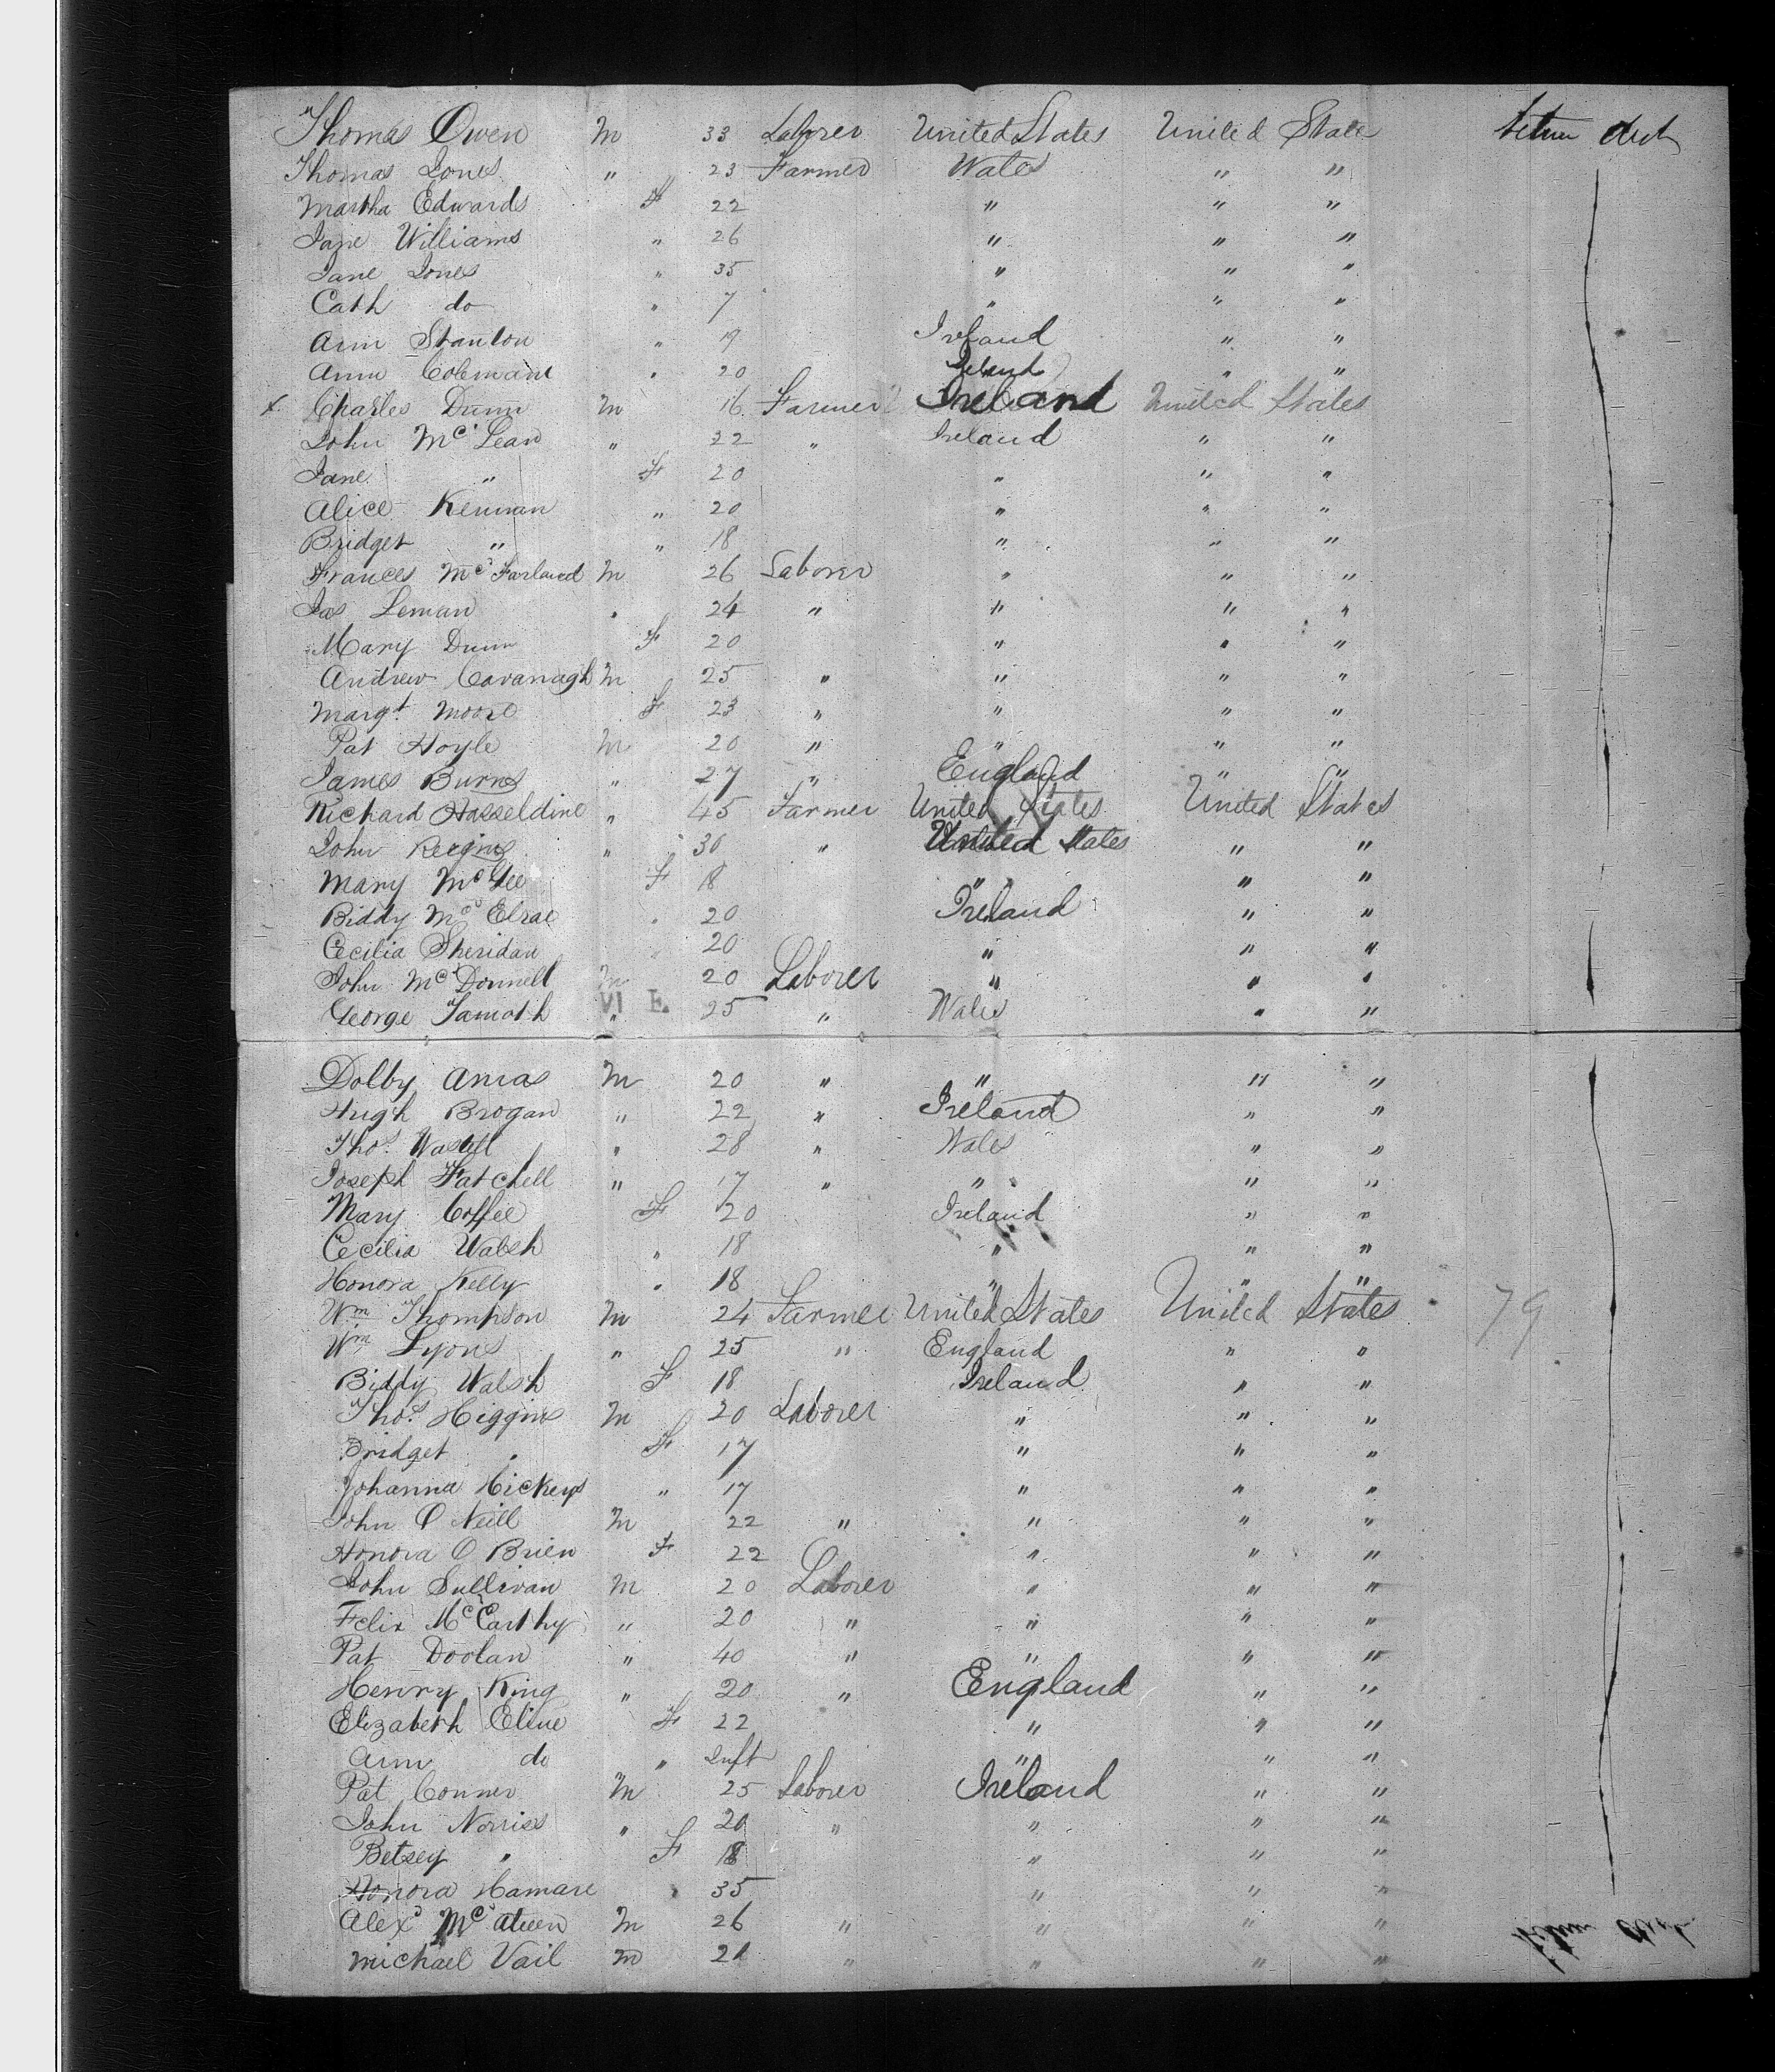 Thomas Owen M 33 Laborer United States United State between deck
Thomas Jones " 23 Farmer Wales " "
Martha Edwards F 22 " " "
Jane Williams " 26 " " "
Jane Jones " 35 " " "
Cath do " 7 " " "
Ann Stanton " 19 Ireland " "
Ann Coleman " 20 Ireland " "
x Charles Dunn M 16 Farmer Ireland United States
John McLean " 22 " Ireland " "
Jane " F 20 " " "
Alice Kennan " 20 " " "
Bridget " " 18 " " "
Frances McFarland M 26 Laborer " " "
Jas Leman " 24 " " " "
Mary Dunn F 20 " " "
Andrew Cavanagh M 25 " " " "
Margt Moore F 23 " " " "
Pat Hoyle M 20 " " " "
James Burns " 27 " England " "
Richard Hasseldine " 45 Farmer United States United States
John " 30 " United States " "
Mary McGee F 18 " " "
Biddy McElrae " 20 Ireland " "
Cecilia Sheridan " 20 " " "
John McDonnell M 20 Laborer " " "
George Jamoth " 25 " Wales " "
VI E.
Dolby Amas M 20 " " " "
Hugh Brogan " 22 " Ireland " "
Thos " 28 " Wales " "
Joseph Fatchell " 17 " " " "
Mary Coffee F 20 Ireland " "
Cecilia Walsh " 18 " " "
Honora Kelly " 18 " " "
Wm Thompson M 24 Farmer United States United States 79
Wm Lyons " 25 " England " "
Biddy Walsh F 18 Ireland " "
Thos Higgins M 20 Laborer " " "
Bridget " F 17 " " "
Johanna Hickeys " 17 " " "
John O Neill M 22 " " " "
Honora O Brien F 22 " " "
John Sullivan M 20 Laborer " " "
Felix McCarthy " 20 " " " "
Pat Doolan " 40 " " " "
Henry King " 20 " England " "
Elizabeth Cline F 22 " " "
Ann do " Inft " " "
Pat Conner M 25 Laborer Ireland " "
John Norriss " 20 " " " "
Betsey " F 18 " " "
Honora Hamare " 35 " " "
Alexr McAteen M 26 " " " "
Michael Vail M 21 " " " "